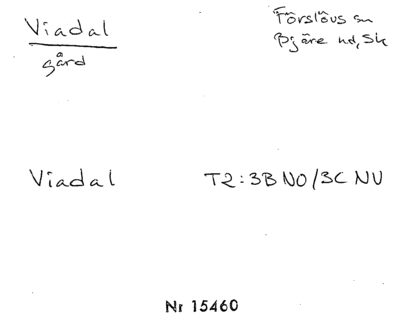 Viadal
gård
Förslövs sn
Bjäre hd, Sk
Viadal
T2:3B NO/3C NV
Nr 15460